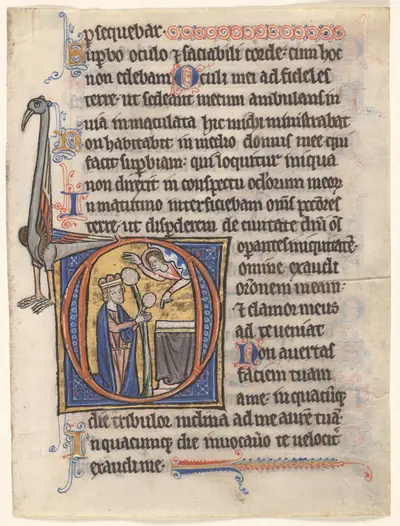 psequebar.
Supbo oculo ⁊ saciabili corde: cum hoc
non edebam Oculi mei ad fideles
terre: ut sedeant mecum ambulans in
uia inmaculata hic michi ministrabat
Non habitabit in medio domus mee qui
facit supbiam: qui loquitur iniqua
non direxit in conspectu oculorum meor
In matutino interficiebam omēs pctōres
terre: ut disperderem de ciuitate dnī ōs
operantes iniquitatē.
omine exaudi
orōnem meam:
⁊ clamor meus
ad te ueniat
Non auertas
faciem tuam
a me: in quacūq
die tribulor inclina ad me aurē tuā
In quacumq die inuocauo te uelocit
exaudi me.